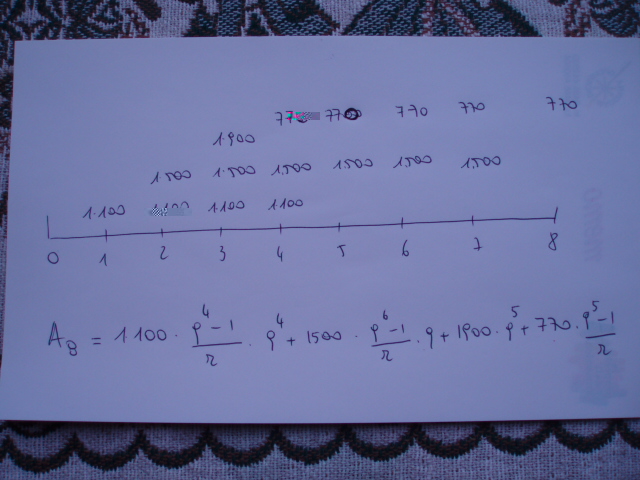 770 770 770
1900
1500 1500 1500 1500 1500 1.500
1.100 1100 1100
0 1 2 3 4 5 6 7 8
A₈ = 1100 · (ρ⁴ - 1)/r · ρ⁴ + 1500 · (ρ⁶ - 1)/r · ρ + 1900 · ρ⁵ + 770 · (ρ⁵ - 1)/r